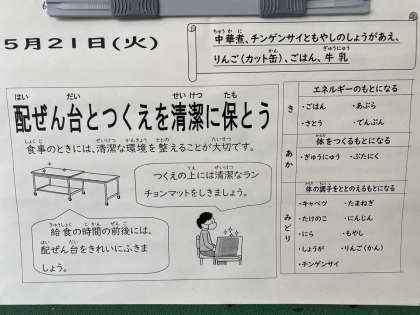 5月21日(火)
中華煮、チンゲンサイともやしのしょうがあえ、
りんご(カット缶)、ごはん、牛乳
配ぜん台とつくえを清潔に保とう
食事のときには、清潔な環境を整えることが大切です。
つくえの上には清潔なラン
チョンマットをしきましょう。
給食の時間の前後には、
配ぜん台をきれいにふきま
しょう。
エネルギーのもとになる
き
・ごはん ・あぶら
・さとう ・でんぷん
体をつくるもとになる
あか
・ぎゅうにゅう ・ぶたにく
体の調子をととのえるもとになる
みどり
・キャベツ ・たまねぎ
・たけのこ ・にんじん
・にら ・もやし
・しょうが ・りんご(かん)
・チンゲンサイ